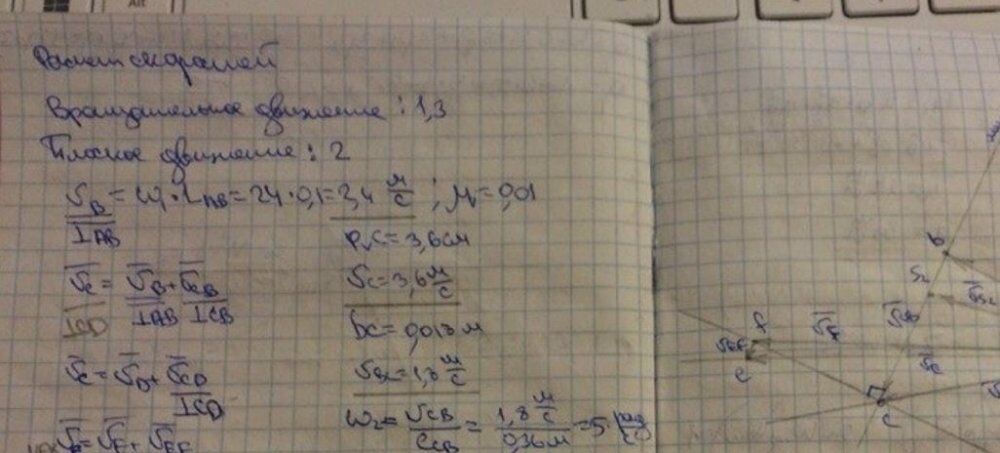 Расчет скоростей
Вращательное движение: 1,3
Плоское движение: 2
V_B = ω₁·L_AB = 24·0,1 = 2,4 м/с ; μ = 0,01
⊥AB
P_vC = 3,6 см
V̅_C = V̅_B + V̅_CB
⊥CD ⊥AB ⊥CB
V_C = 3,6 м/с
bc = 0,018 м
V̅_C = V̅_D + V̅_CD
⊥CD
V_BC = 1,8 м/с
ω₂ = V_CB / ℓ_CB = 1,8 м/с / 0,36 м = 5 рад/с
b
S₂
f
V̅_F
e
V̅_C
c